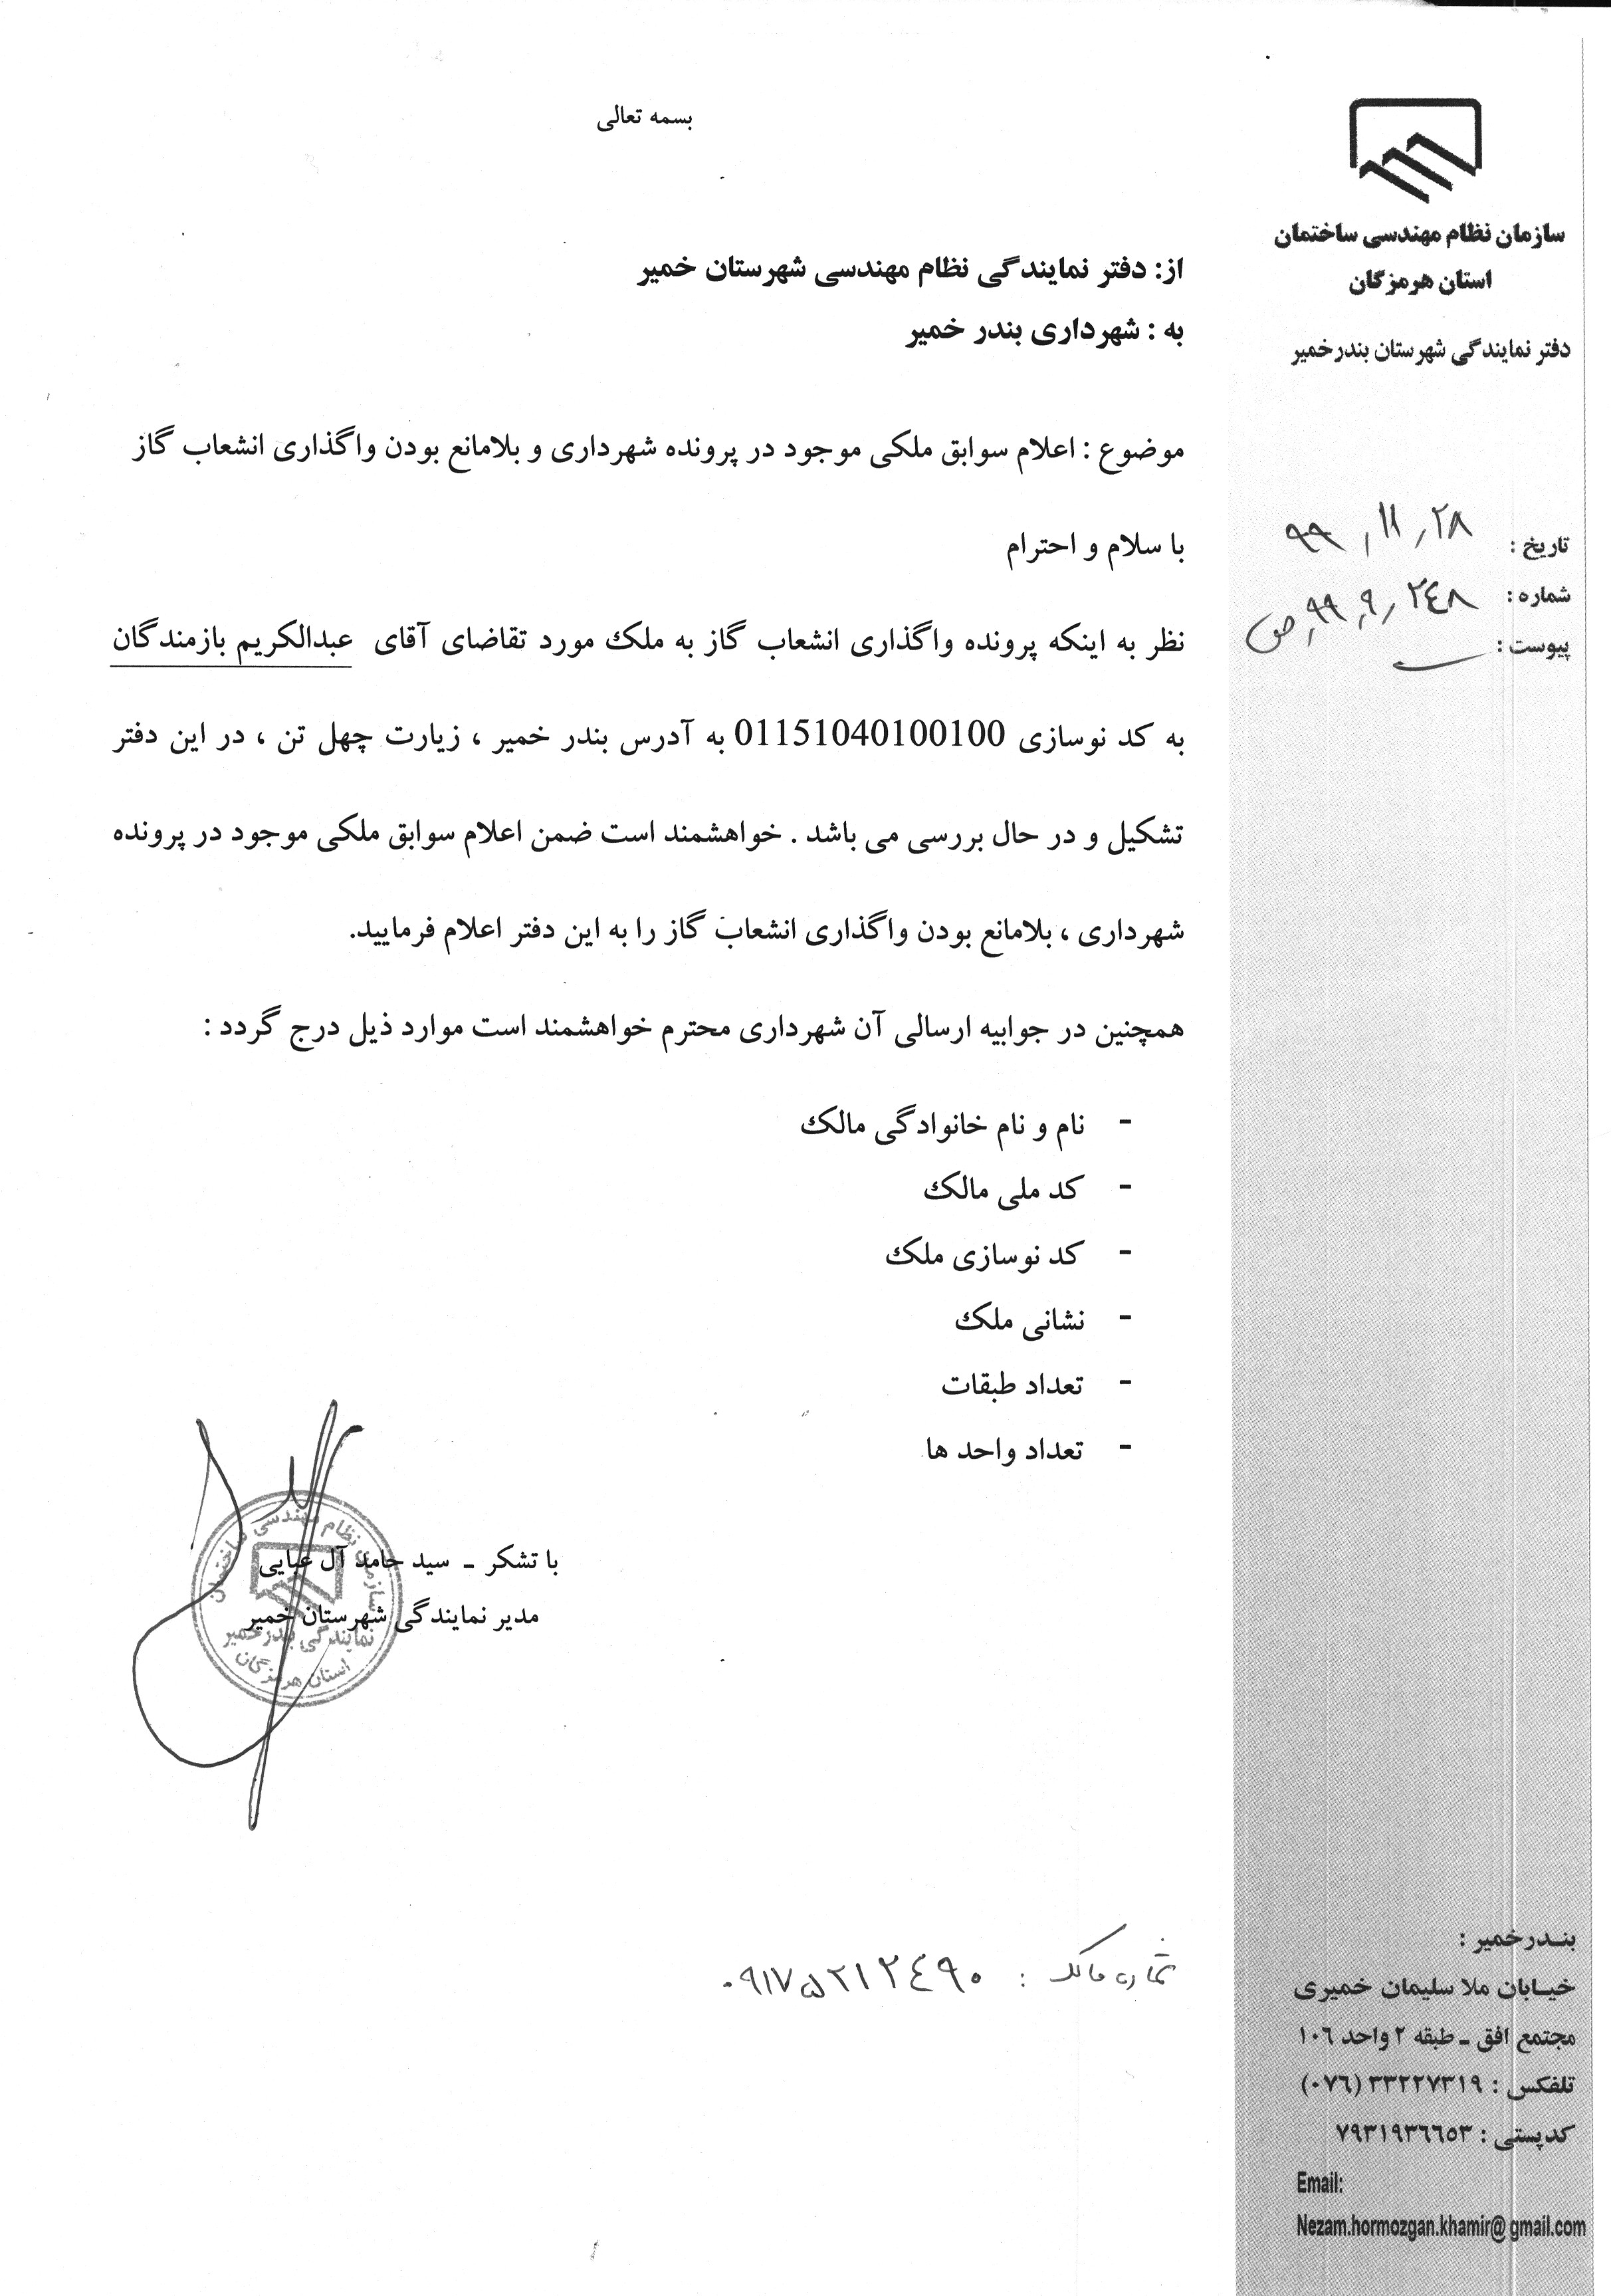 بسمه تعالی
سازمان نظام مهندسی ساختمان
استان هرمزگان
دفتر نمایندگی شهرستان بندرخمیر
تاریخ : ۹۹/۱۱/۲۸
شماره : ۲۴۸/۹/۹۹/ص
پیوست :
از: دفتر نمایندگی نظام مهندسی شهرستان خمیر
به : شهرداری بندر خمیر
موضوع : اعلام سوابق ملکی موجود در پرونده شهرداری و بلامانع بودن واگذاری انشعاب گاز
با سلام و احترام
نظر به اینکه پرونده واگذاری انشعاب گاز به ملک مورد تقاضای آقای عبدالکریم بازمندگان
به کد نوسازی 01151040100100 به آدرس بندر خمیر ، زیارت چهل تن ، در این دفتر
تشکیل و در حال بررسی می باشد . خواهشمند است ضمن اعلام سوابق ملکی موجود در پرونده
شهرداری ، بلامانع بودن واگذاری انشعاب گاز را به این دفتر اعلام فرمایید.
همچنین در جوابیه ارسالی آن شهرداری محترم خواهشمند است موارد ذیل درج گردد :
- نام و نام خانوادگی مالک
- کد ملی مالک
- کد نوسازی ملک
- نشانی ملک
- تعداد طبقات
- تعداد واحد ها
با تشکر ـ سید حامد آل عبایی
مدیر نمایندگی شهرستان خمیر
سازمان نظام مهندسی ساختمان
نمایندگی بندرخمیر
استان هرمزگان
شماره مالک : ۰۹۱۷۵۲۱۲۴۹۰
بندرخمیر :
خیابان ملا سلیمان خمیری
مجتمع افق ـ طبقه ۲ واحد ۱۰۶
تلفکس : ۳۳۲۲۷۳۱۹ (۰۷۶)
کدپستی : ۷۹۳۱۹۳۶۶۵۳
Email:
Nezam.hormozgan.khamir@gmail.com